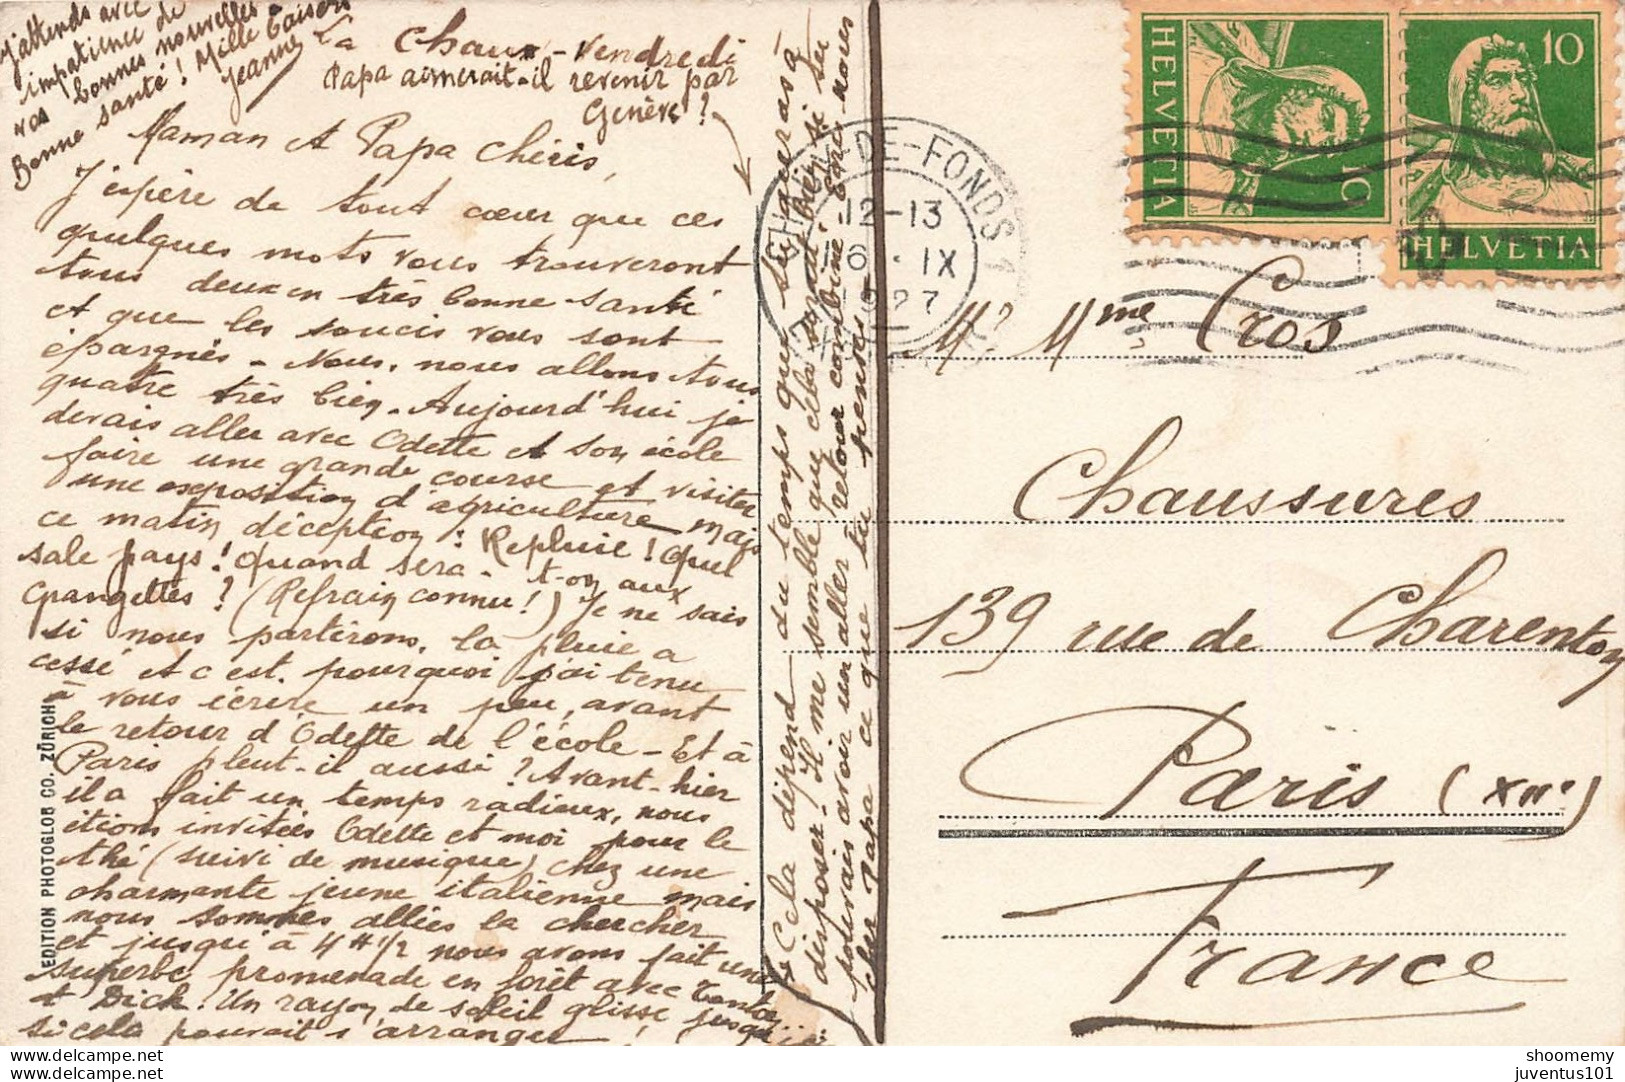 La Chaux - Vendredi
Papa aimerait-il revenir par
Genève ?
Maman et Papa chéris,
J'espère de tout cœur que ces
quelques mots vous trouveront
tous deux en très bonne santé
et que les soucis vous sont
épargnés - Nous, nous allons tous
quatre très bien - Aujourd'hui je
devais aller avec Odette et son école
faire une grande course et visiter
une exposition d'agriculture mais
ce matin déception : Repluie ! Quel
sale pays ! Quand sera-t-on aux
Grangettes ? (Refrain connu !) Je ne sais
si nous partirons, la pluie a
cessé et c'est pourquoi j'ai tenu
à vous écrire un peu, avant
le retour d'Odette de l'école - Et à
Paris pleut-il aussi ? Avant-hier
il a fait un temps radieux, nous
étions invitées Odette et moi pour le
thé (suivi de musique) chez une
charmante jeune italienne mais
nous sommes allées la chercher
et jusqu'à 4 H 1/2 nous avons fait une
superbe promenade en forêt avec Tante
et Dick. Un rayon de soleil glisse jusqu'
si cela pouvait s'arranger !
Cela dépend du temps que tu auras à
disposer - Il me semble que cela serait bien si tu
pouvais avoir un aller retour combiné - Ecris nous
cher Papa ce que tu penses
J'attends avec
impatience de
vos bonnes nouvelles -
Bonne santé ! Mille baisers
Jeanne
EDITION PHOTOGLOB CO. ZÜRICH
HELVETIA
10
10
HELVETIA
-DE-FONDS 1
12-13
6. IX
1927
Mr Mme Cros
Chaussures
139 rue de Charenton
Paris (XIIe)
France
shoomemy
juventus101